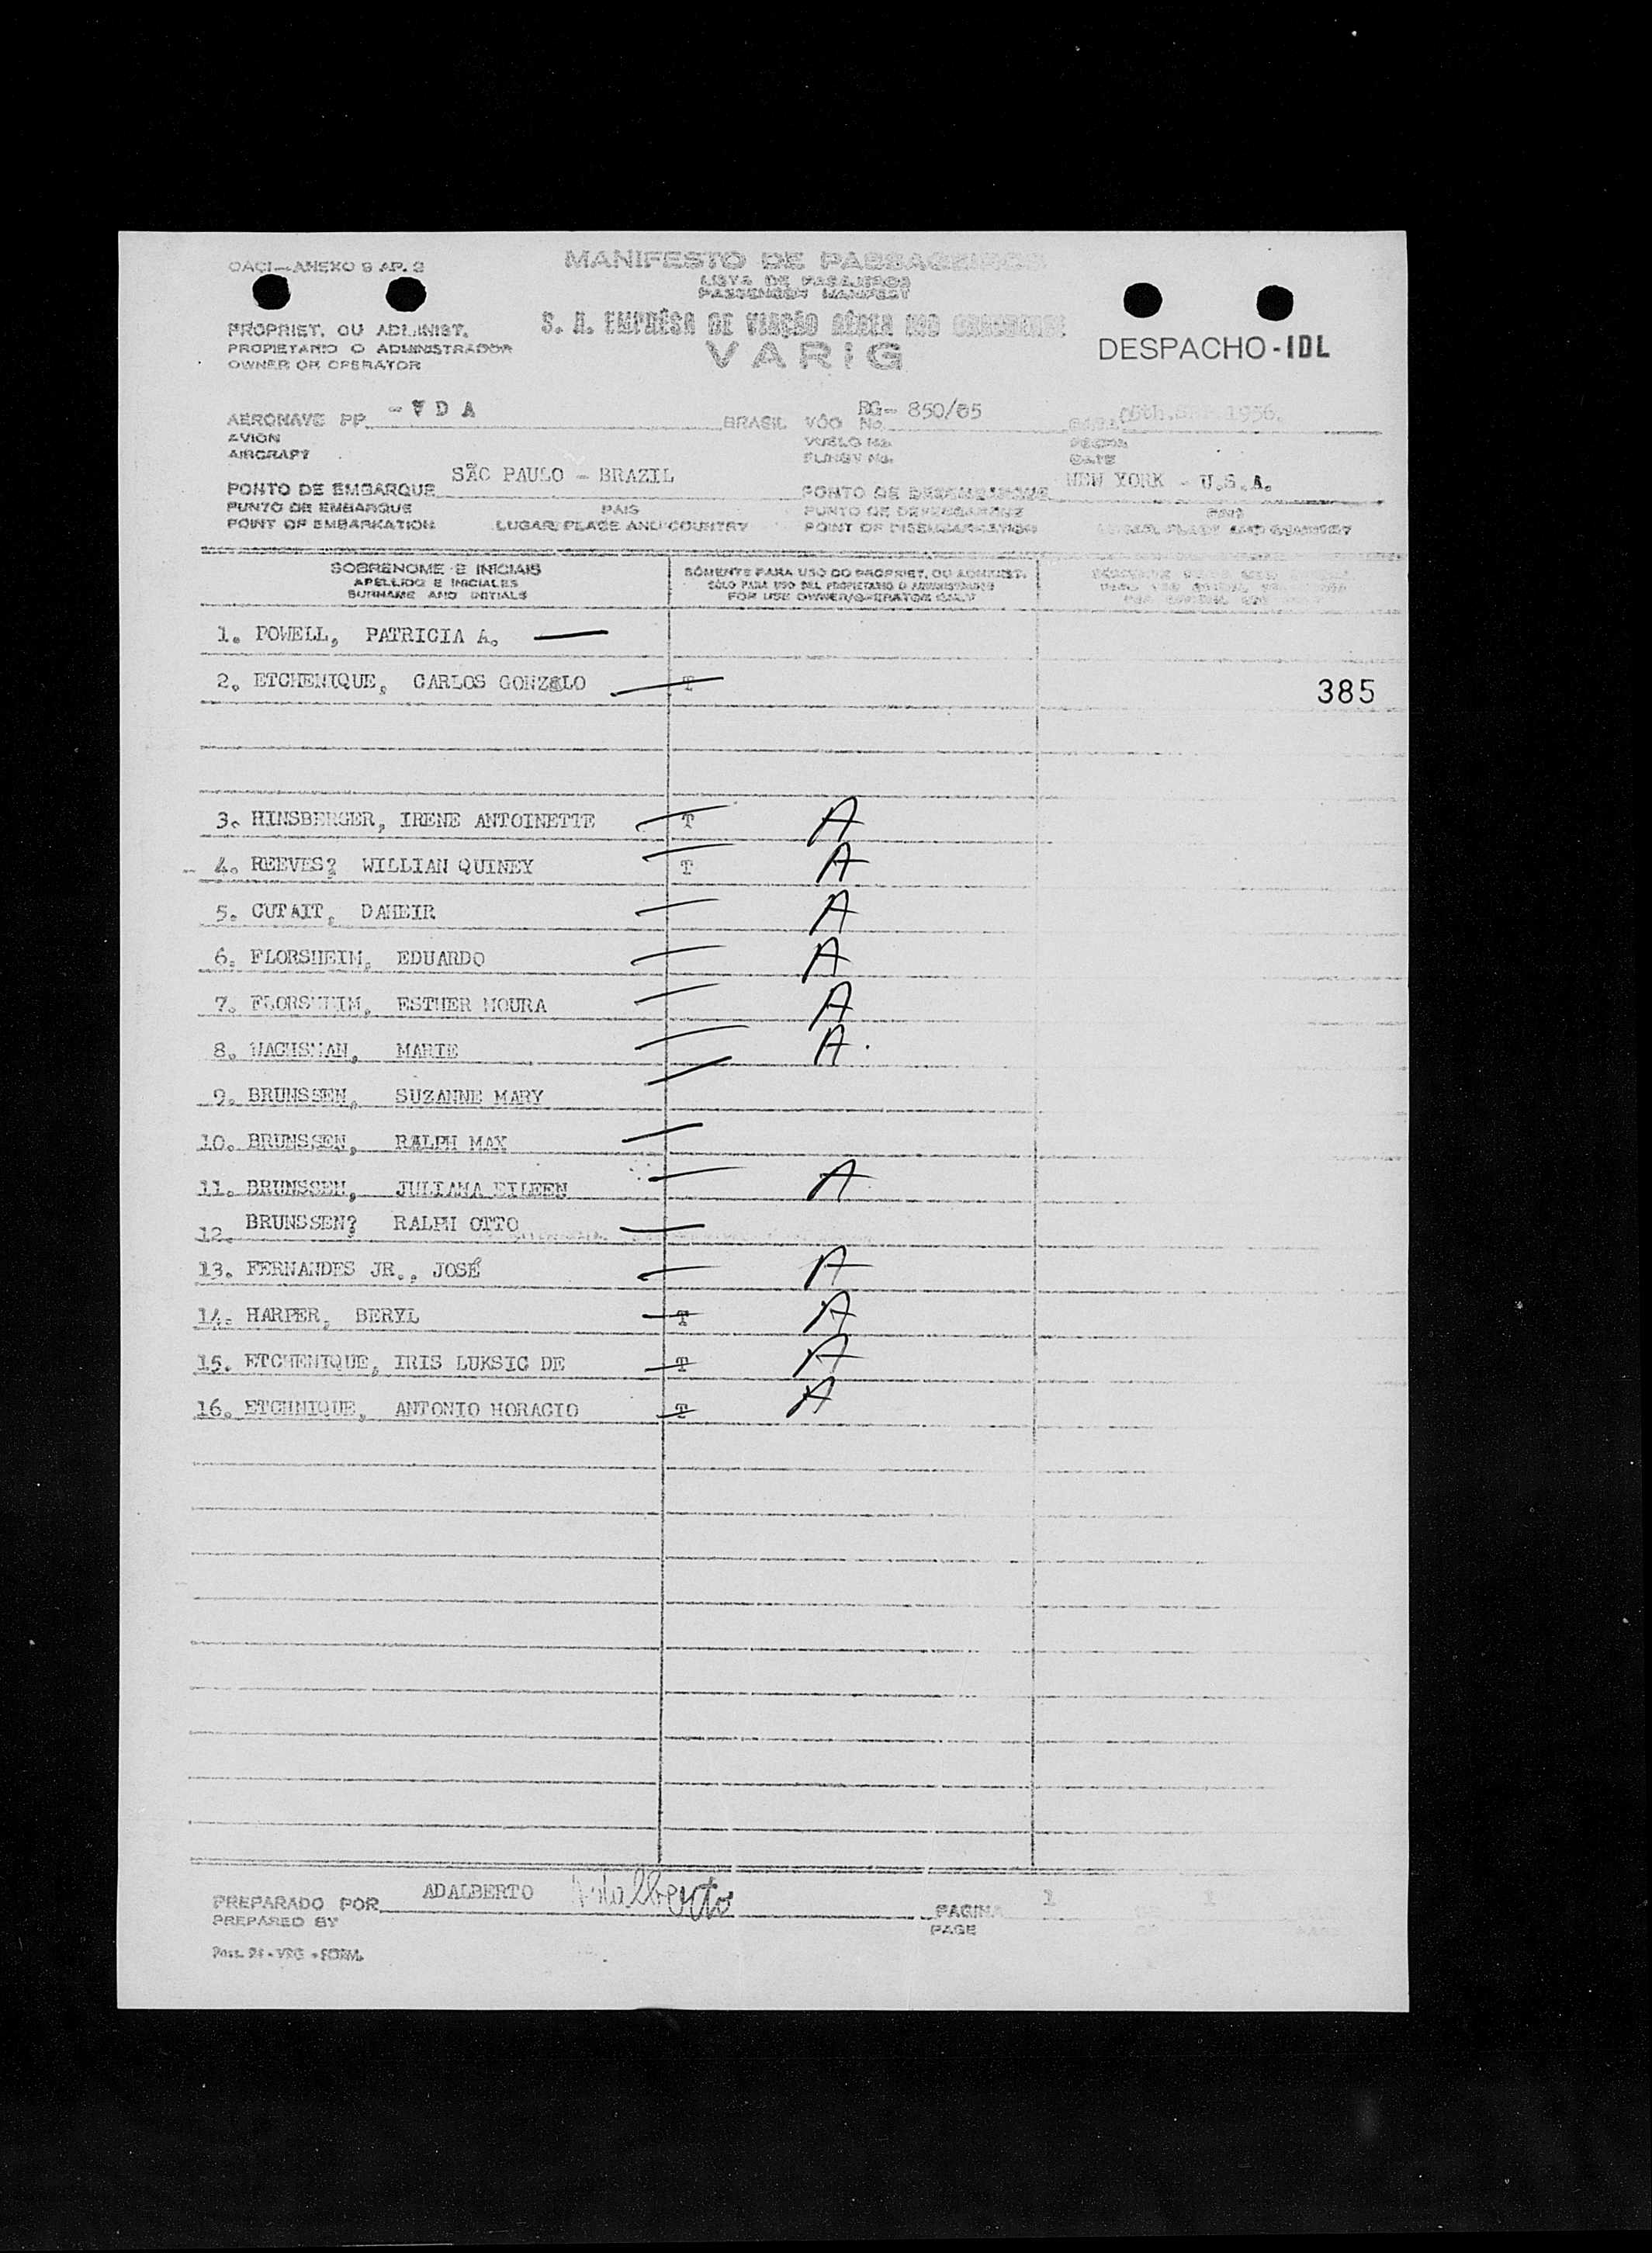 OACI—ANEXO 9 AP. 2
MANIFESTO DE PASSAGEIROS
LISTA DE PASAJEROS
PASSENGER MANIFEST
PROPRIET. OU ADMINIST.
PROPIETARIO O ADMINISTRADOR
OWNER OR OPERATOR
S. A. EMPRÊSA DE VIAÇÃO AÉREA RIO GRANDENSE
VARIG
DESPACHO-IDL
AERONAVE PP -V D A BRASIL VÔO No. RG- 850/85 1956.
AVION VUELO No. FECHA
AIRCRAFT FLIGHT No. DATE
PONTO DE EMBARQUE SÃO PAULO - BRAZIL PONTO DE DESEMBARQUE NEW YORK - U.S.A.
PUNTO DE EMBARQUE PAIS PUNTO DE DESEMBARQUE PAIS
POINT OF EMBARKATION LUGAR, PLACE AND COUNTRY POINT OF DISEMBARKATION LUGAR, PLACE AND COUNTRY
SOBRENOME E INICIAIS SÓMENTE PARA USO DO PROPRIET. OU ADMINIST.
APELLIDO E INICIALES SÓLO PARA USO DEL PROPIETARIO O ADMINISTRADOR
SURNAME AND INITIALS FOR USE OWNER/OPERATOR ONLY
1. POWELL, PATRICIA A. —
2. ETCHENIQUE, CARLOS GONZALO — T
385
3. HINSBERGER, IRENE ANTOINETTE — T A
4. REEVES? WILLIAN QUINEY — T A
5. CUTAIT, DAHEIR — A
6. FLORSHEIM, EDUARDO — A
7. FLORSHEIM, ESTHER MOURA — A
8. WACHSMAN, MARIE — A.
9. BRUNSSEN, SUZANNE MARY —
10. BRUNSSEN, RALPH MAX —
11. BRUNSSEN, JULIANA EILEEN — A
12. BRUNSSEN? RALPH OTTO —
13. FERNANDES JR., JOSÉ — A
14. HARPER, BERYL — T A
15. ETCHENIQUE, IRIS LUKSIC DE — T A
16. ETCHNIQUE, ANTONIO HORACIO — T A
PREPARADO POR ADALBERTO Adalberto PAGINA 1 1
PREPARED BY PAGE